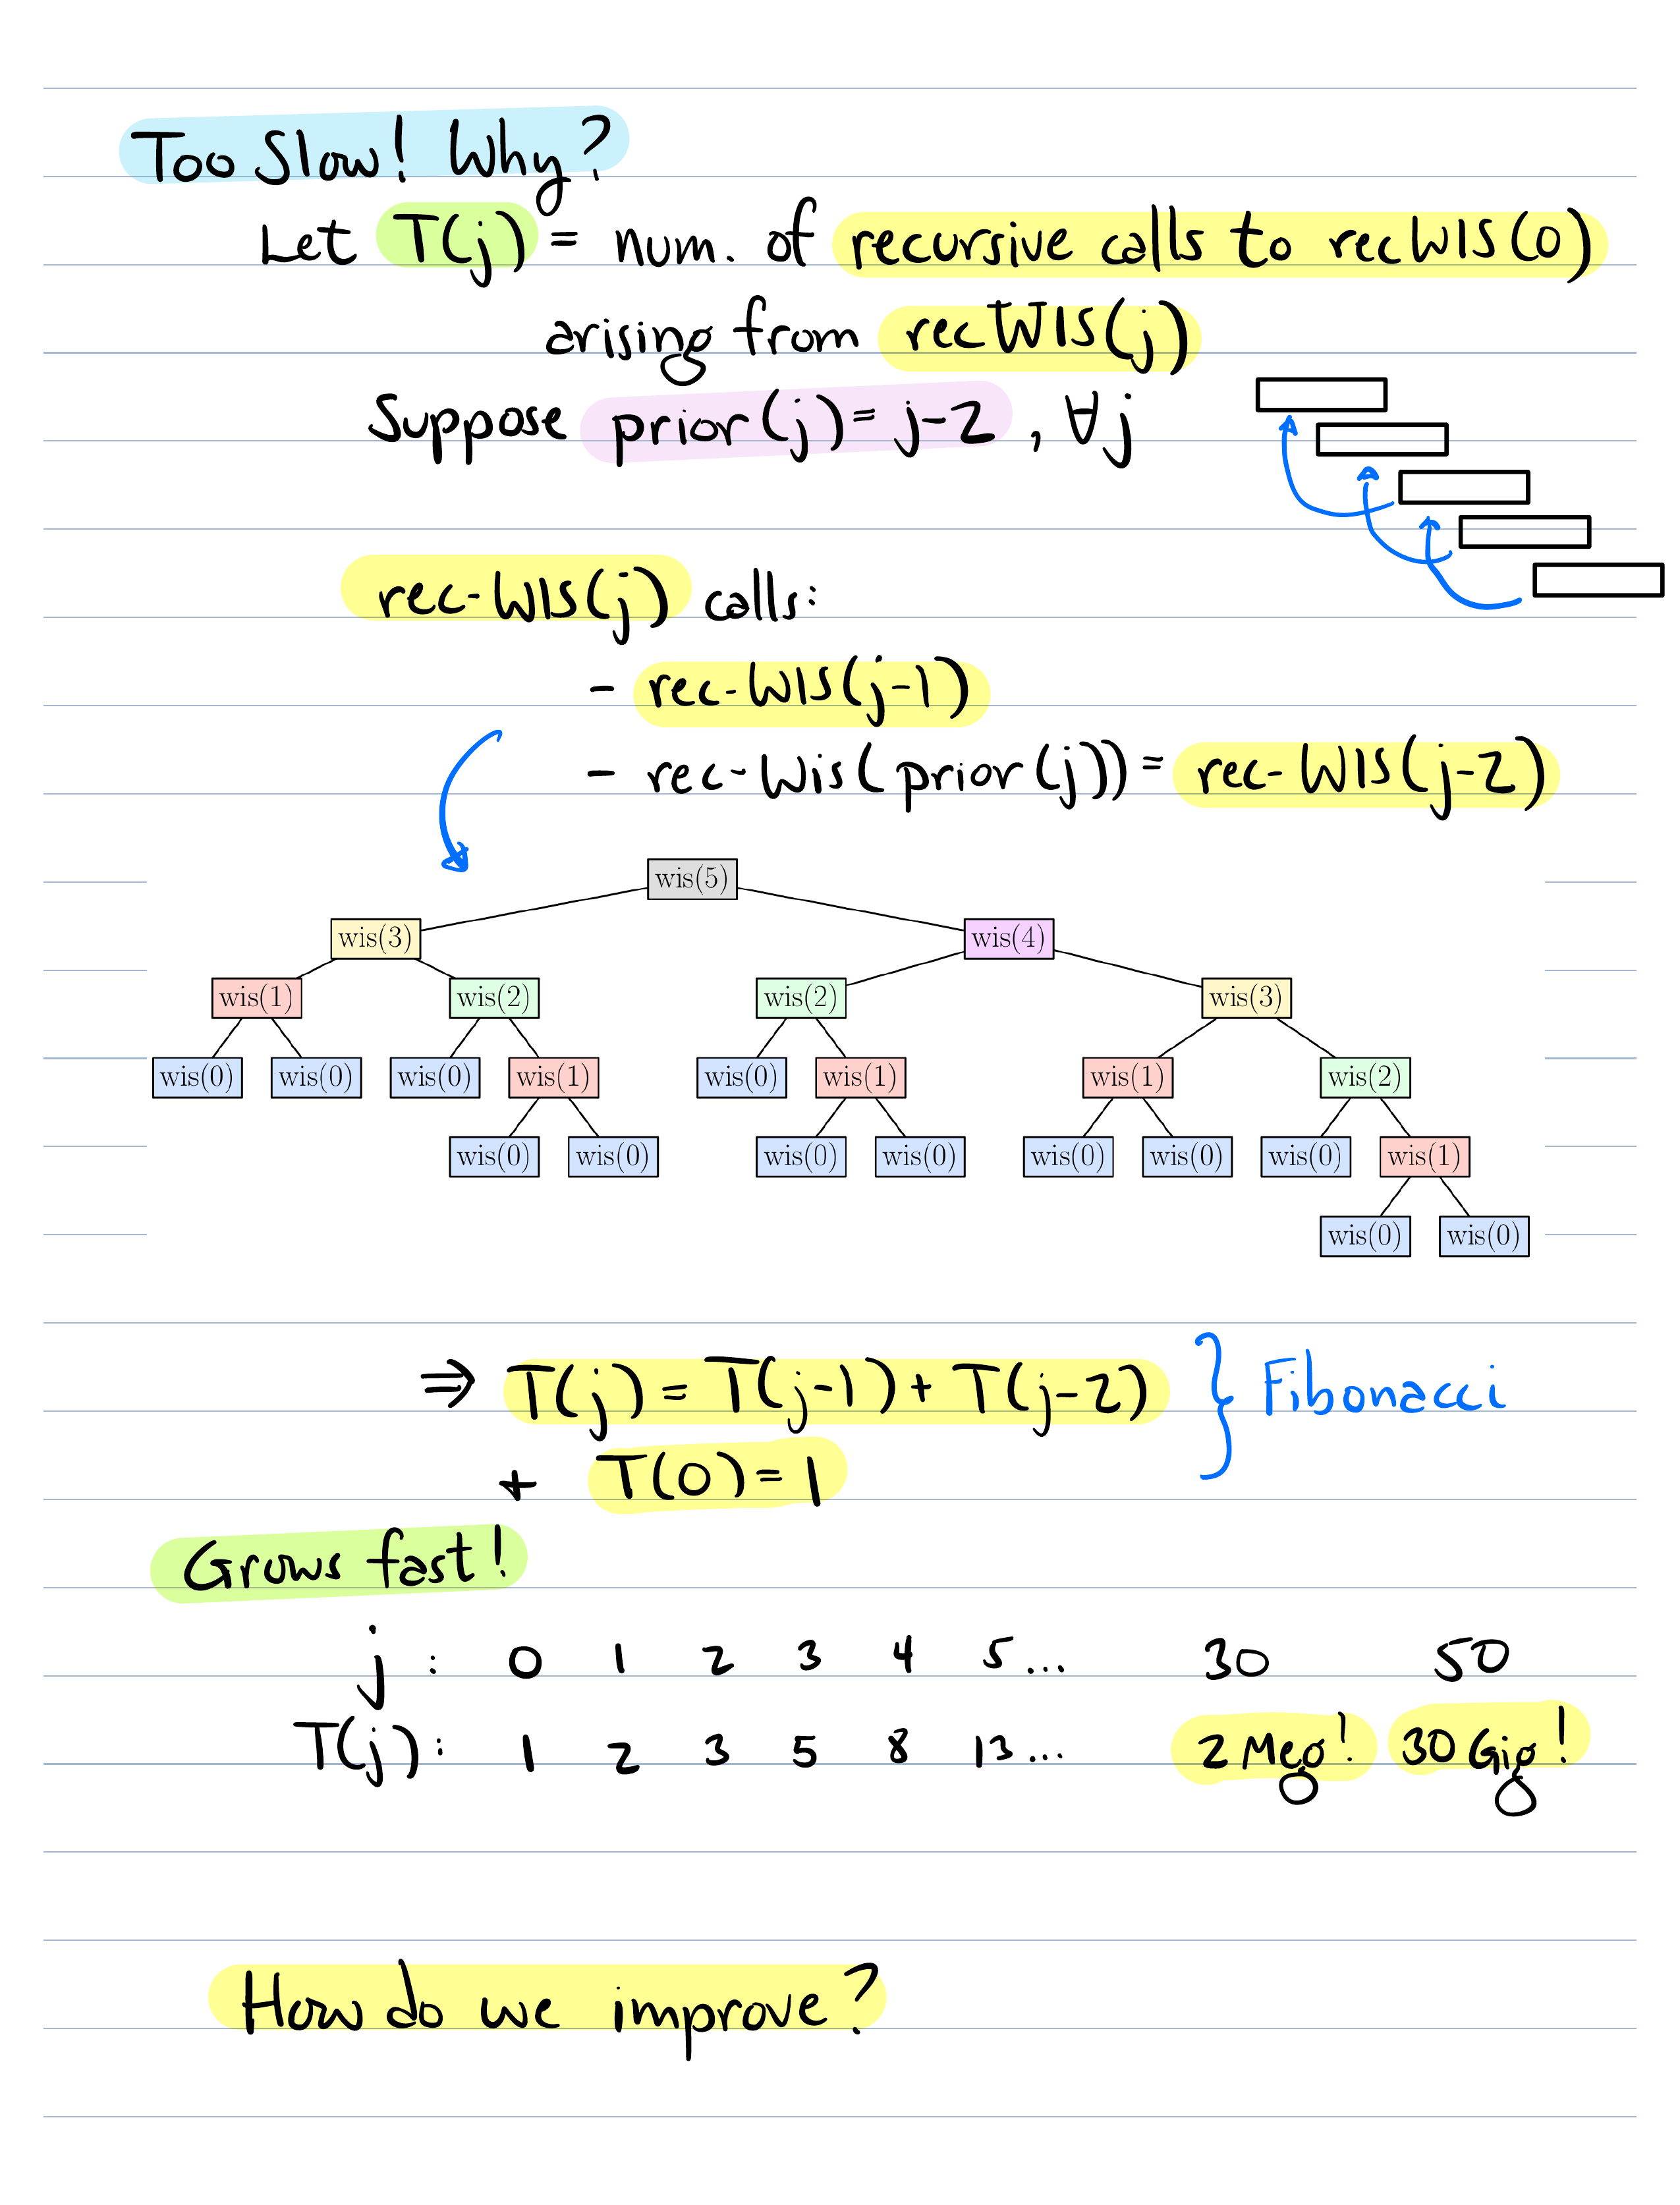 Too Slow! Why?
Let T(j) = num. of recursive calls to recWIS(0)
arising from recWIS(j)
Suppose prior(j)=j-2, ∀j
rec-WIS(j) calls:
- rec-WIS(j-1)
- rec-Wis(prior(j))= rec-WIS(j-2)
wis(5)
wis(3) wis(4)
wis(1) wis(2) wis(2) wis(3)
wis(0) wis(0) wis(0) wis(1) wis(0) wis(1) wis(1) wis(2)
wis(0) wis(0) wis(0) wis(0) wis(0) wis(0) wis(0) wis(1)
wis(0) wis(0)
⇒ T(j) = T(j-1) + T(j-2) } Fibonacci
+ T(0)=1
Grows fast!
j : 0 1 2 3 4 5... 30 50
T(j): 1 2 3 5 8 13... 2 Meg! 30 Gig!
How do we improve?